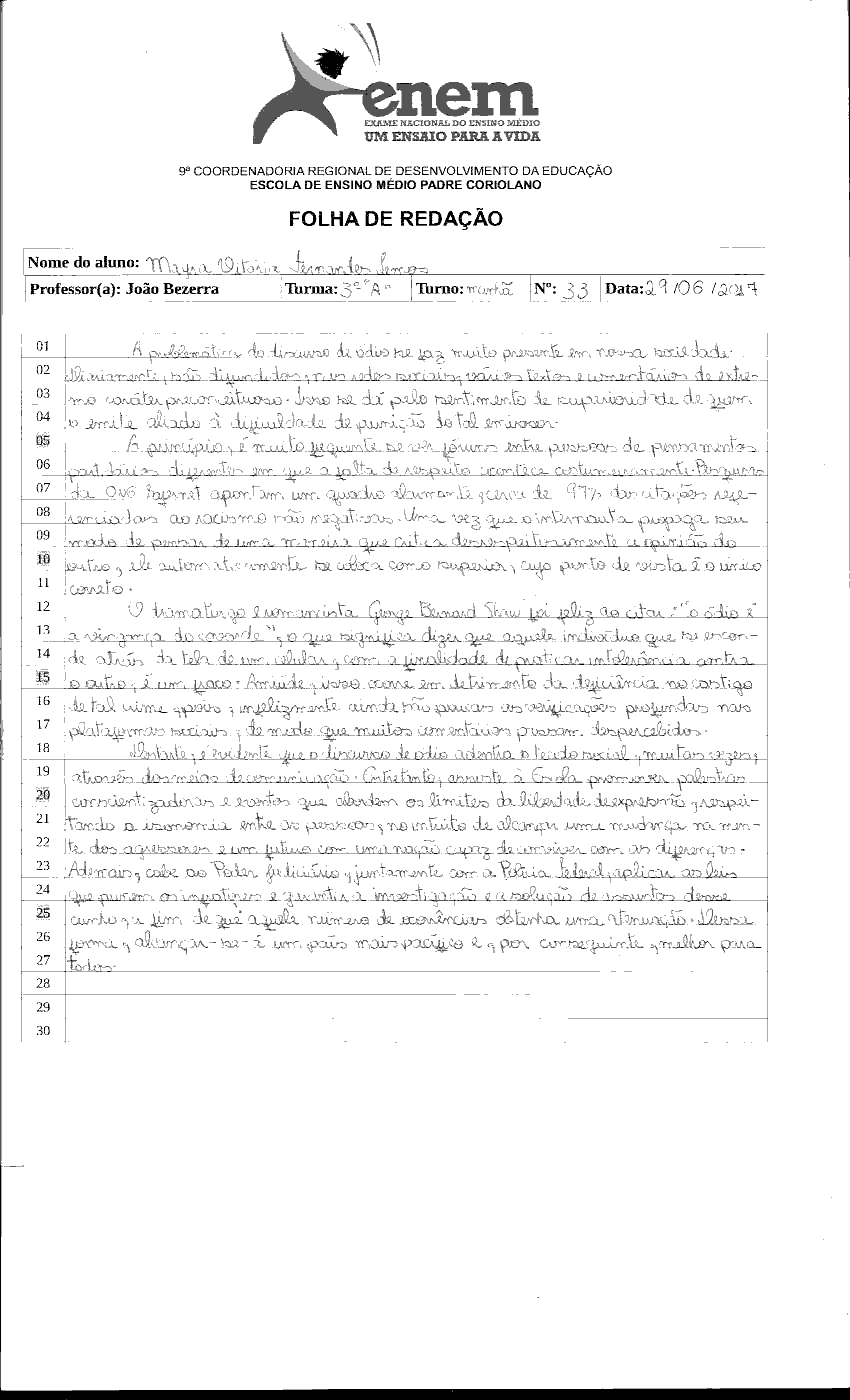 enem
EXAME NACIONAL DO ENSINO MÉDIO
UM ENSAIO PARA A VIDA
9ª COORDENADORIA REGIONAL DE DESENVOLVIMENTO DA EDUCAÇÃO
ESCOLA DE ENSINO MÉDIO PADRE CORIOLANO
FOLHA DE REDAÇÃO
Nome do aluno: Mayra Vitória Fernandes
Professor(a): João Bezerra Turma: 3º "A" Turno: manhã Nº: 33 Data: 29/06/2017
01 A problemática do discurso de ódio se faz muito presente em nossa sociedade.
02 Diariamente, são difundidos, nas redes sociais, vários textos e comentários de extre-
03 mo caráter preconceituoso. Isso se dá pelo sentimento de superioridade de quem
04 o emite aliado à dificuldade de punição do tal emissor.
05 A princípio, é muito frequente se ver fóruns entre pessoas de pensamentos
06 partidários diferentes em que a falta de respeito acontece costumeiramente. Pesquisas
07 da ONG apontam um quadro alarmante, cerca de 97% das citações refe-
08 renciadas ao racismo são negativas. Uma vez que o internauta propaga seu
09 modo de pensar de uma maneira que critica desrespeitosamente a opinião do
10 outro, ele automaticamente se coloca como superior, cujo ponto de vista é o único
11 correto.
12 O dramaturgo e romancista George Bernard Shaw foi feliz ao citar: "o ódio é
13 a vingança do covarde", o que significa dizer que aquele indivíduo que se escon-
14 de atrás da tela de um celular, com a finalidade de praticar intolerância contra
15 o outro, é um fraco. Amiúde, isso ocorre em detrimento da deficiência no castigo
16 de tal crime, pois, infelizmente ainda são poucas as verificações profundas nas
17 plataformas sociais, de modo que muitos comentários passam despercebidos.
18 Destarte, é evidente que o discurso de ódio adentra o tecido social, muitas vezes,
19 através dos meios de comunicação. Entretanto, assiste à Escola promover palestras
20 conscientizadoras e eventos que abordem os limites da liberdade de expressão, respei-
21 tando a isonomia entre as pessoas, no intuito de alcançar uma mudança na men-
22 te dos agressores e um futuro com uma nação capaz de conviver com as diferenças.
23 Ademais, cabe ao Poder Judiciário, juntamente com a Polícia Federal, aplicar as leis
24 que punem os infratores e garantir a investigação e a solução de assuntos desse
25 cunho, a fim de que aquele número de ocorrências obtenha uma atenuação. Dessa
26 forma, alcançar-se-á um país mais pacífico e, por conseguinte, melhor para
27 todos.
28
29
30